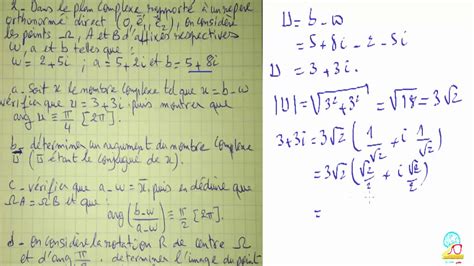 2 - Dans le plan complexe rapporté à un repère
orthonormé direct (O, e₁, e₂), on considère
les points Ω, A et B d'affixes respectives
W, a et b telles que :
w = 2+5i ; a = 5+2i et b = 5+8i
a. soit u le nombre complexe tel que u = b-w
vérifie que u = 3+3i puis montrer que
arg u ≡ π/4 [2π].
b - déterminer un argument du nombre complexe
ū (ū étant le conjugué de u).
c - vérifie que a-w = ū, puis en déduire que
ΩA = ΩB et que :
arg((b-w)/(a-w)) ≡ π/2 [2π].
d - on considère la rotation R de centre Ω
et d'ang π/2. déterminer l'image du point
U = b - w
= 5+8i - 2 - 5i
U = 3 + 3i.
|U| = √(3²+3²) = √18 = 3√2
3+3i = 3√2 (1/√2 + i 1/√2)
= 3√2 (√2/2 + i √2/2)
=